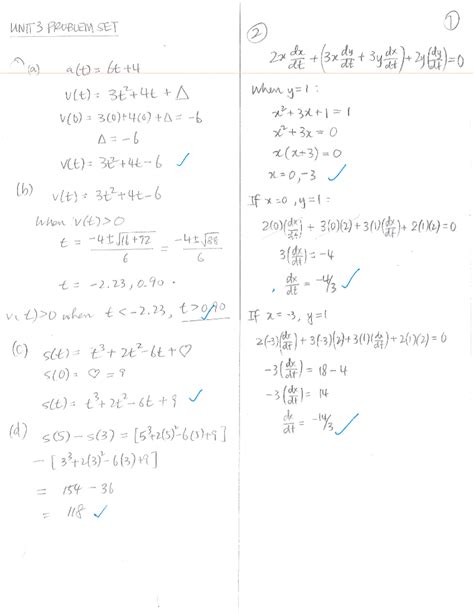 UNIT 3 PROBLEM SET
(a) a(t) = 6t+4
v(t) = 3t²+4t+Δ
v(0) = 3(0)+4(0)+Δ = -6
Δ = -6
v(t) = 3t²+4t-6 ✓
(b) v(t) = 3t²+4t-6
when v(t)>0
t = (-4±√(16+72))/6 = (-4±√88)/6
t = -2.23, 0.90.
v(t)>0 when t < -2.23, t>0.90 ✓
(c) s(t) = t³+2t²-6t+♡
s(0) = ♡ = 9
s(t) = t³+2t²-6t+9 ✓
(d) s(5)-s(3) = [5³+2(5)²-6(5)+9]
-[3³+2(3)²-6(3)+9]
= 154-36
= 118 ✓
①
②
2x dx/dt + (3x dy/dt + 3y dx/dt) + 2y(dy/dt) = 0
When y=1:
x²+3x+1 = 1
x²+3x = 0
x(x+3) = 0
x = 0, -3 ✓
If x=0, y=1:
2(0)(dx/dt) + 3(0)(2)+3(1)(dx/dt)+2(1)(2)=0
3(dx/dt) = -4
dx/dt = -4/3 ✓
If x=-3, y=1
2(-3)(dx/dt)+3(-3)(2)+3(1)(dx/dt)+2(1)(2)=0
-3(dx/dt) = 18-4
-3(dx/dt) = 14
dx/dt = -14/3 ✓